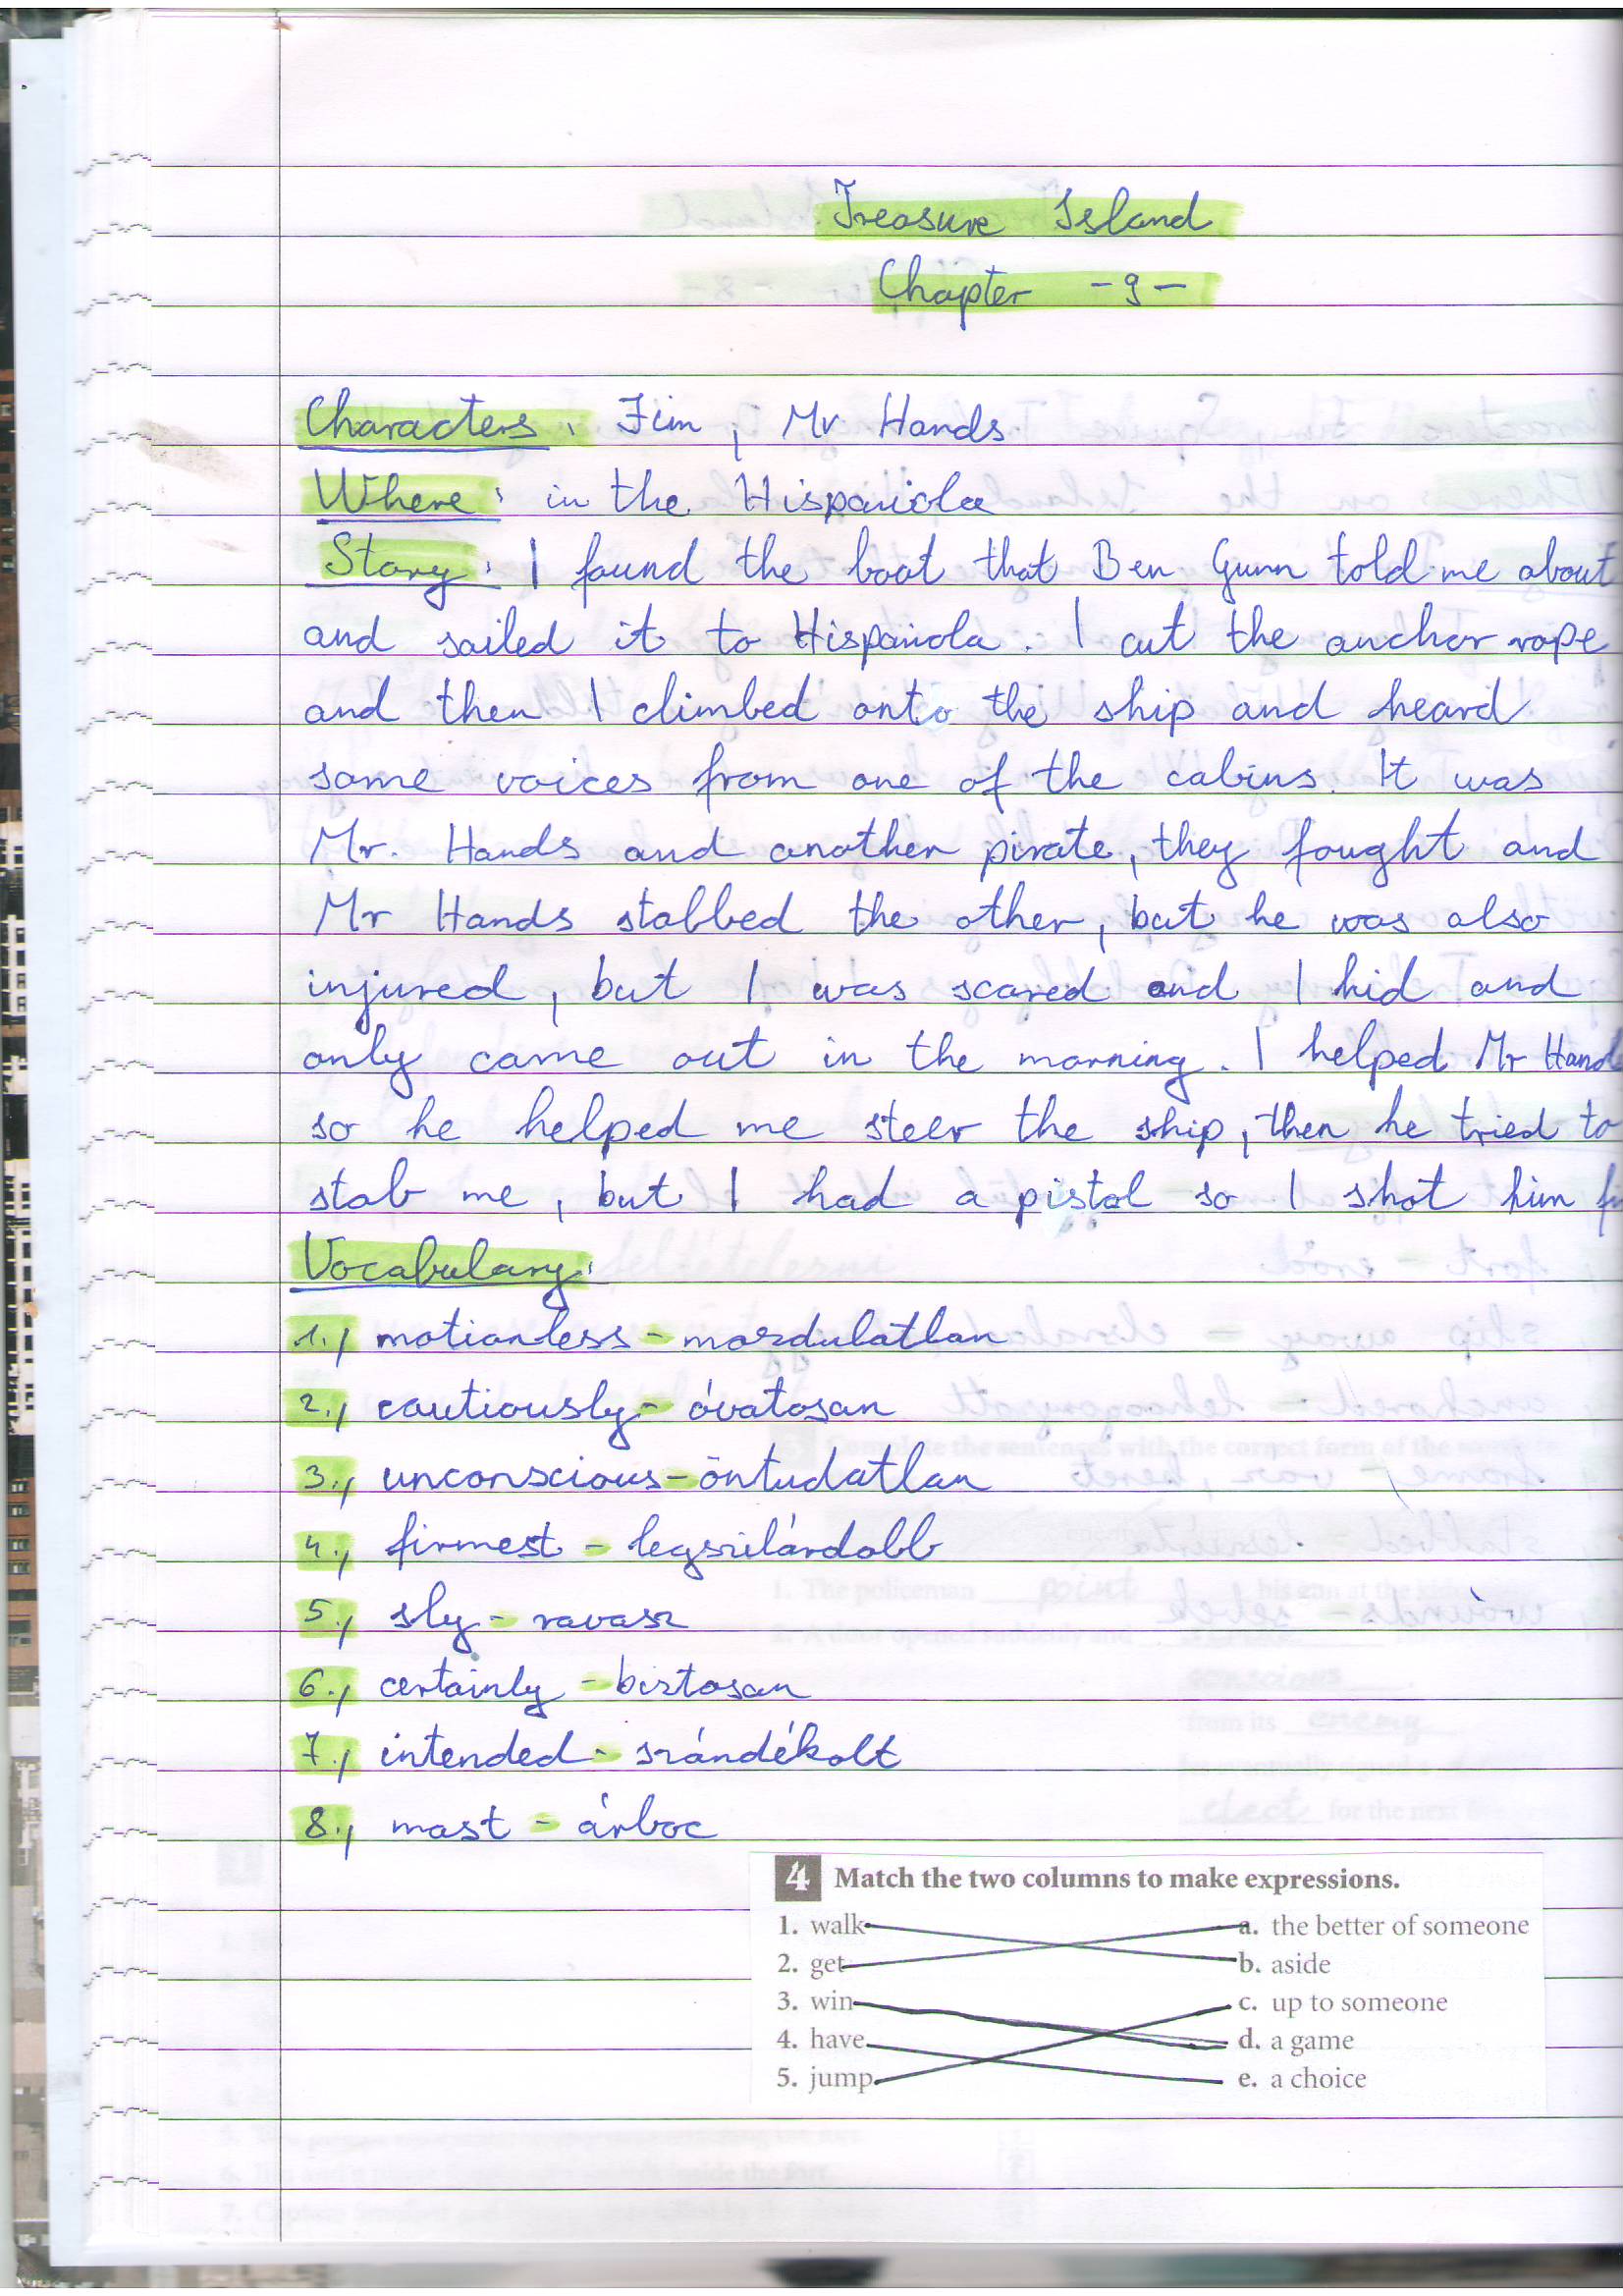 Treasure Island
Chapter -9-
Characters: Jim, Mr Hands
Where: in the Hispaniola
Story: I found the boat that Ben Gunn told me about
and sailed it to Hispaniola. I cut the anchor rope
and then I climbed onto the ship and heard
some voices from one of the cabins. It was
Mr. Hands and another pirate, they fought and
Mr Hands stabbed the other, but he was also
injured, but I was scared and I hid and
only came out in the morning. I helped Mr Hand
so he helped me steer the ship, then he tried to
stab me, but I had a pistol so I shot him
Vocabulary:
1., motionless - mozdulatlan
2., cautiously - óvatosan
3., unconscious - öntudatlan
4., firmest - legszilárdabb
5., sly - ravasz
6., certainly - biztosan
7., intended - szándékolt
8., mast - árboc
4 Match the two columns to make expressions.
1. walk a. the better of someone
2. get b. aside
3. win c. up to someone
4. have d. a game
5. jump e. a choice